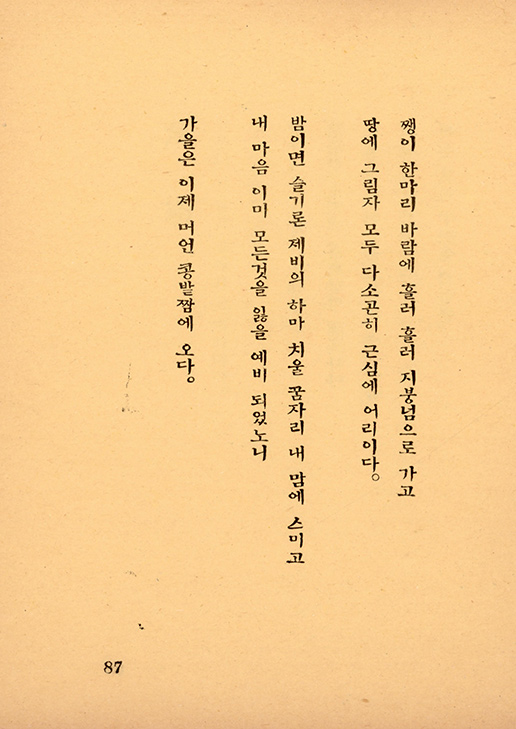 쨍이 한마리 바람에 흘러 흘러 지붕넘으로 가고
땅에 그림자 모두 다소곤히 근심에 어리이다。
밤이면 슬기론 제비의 하마 치울 꿈자리 내 맘에 스미고
내 마음 이미 모든것을 잃을 예비 되었노니
가을은 이제 머언 콩밭짬에 오다。
87